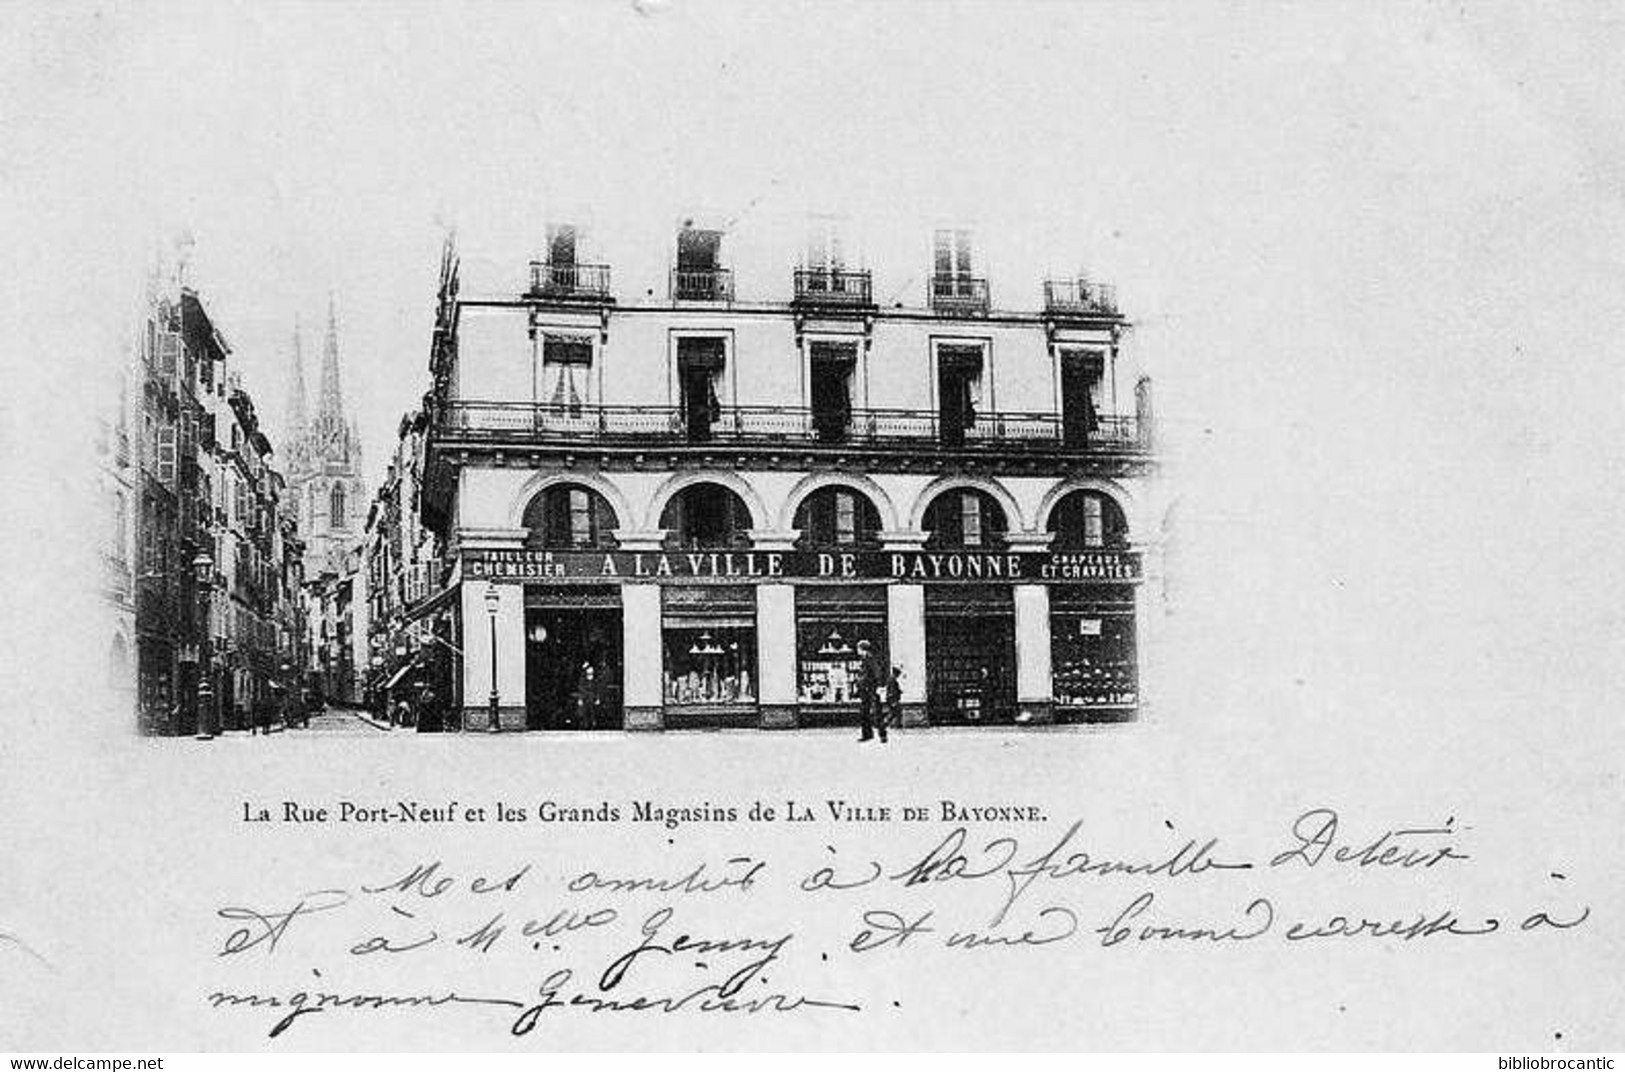 TAILLEUR
CHEMISIER
A LA VILLE DE BAYONNE
CHAPEAUX
ET CRAVATES
La Rue Port-Neuf et les Grands Magasins de LA VILLE DE BAYONNE.
Mes amitiés à la famille
et à Melle Genny. et une bonne caresse à
mignonne Geneviève.
delcampe.net
bibliobrocantic